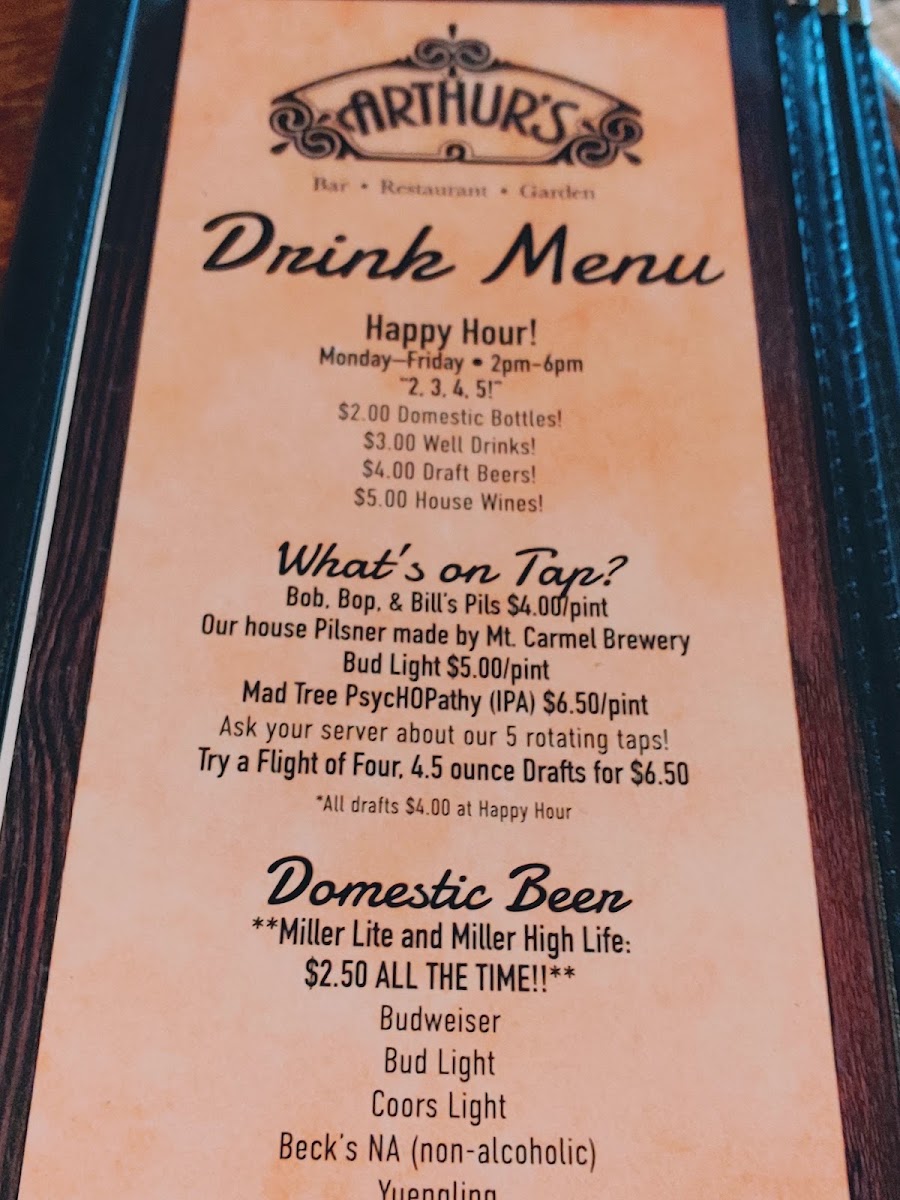 ARTHUR'S
Bar • Restaurant • Garden
Drink Menu
Happy Hour!
Monday–Friday • 2pm-6pm
"2, 3, 4, 5!"
$2.00 Domestic Bottles!
$3.00 Well Drinks!
$4.00 Draft Beers!
$5.00 House Wines!
What's on Tap?
Bob, Bop, & Bill's Pils $4.00/pint
Our house Pilsner made by Mt. Carmel Brewery
Bud Light $5.00/pint
Mad Tree PsycHOPathy (IPA) $6.50/pint
Ask your server about our 5 rotating taps!
Try a Flight of Four, 4.5 ounce Drafts for $6.50
*All drafts $4.00 at Happy Hour
Domestic Beer
**Miller Lite and Miller High Life:
$2.50 ALL THE TIME!!**
Budweiser
Bud Light
Coors Light
Beck's NA (non-alcoholic)
Yuengling